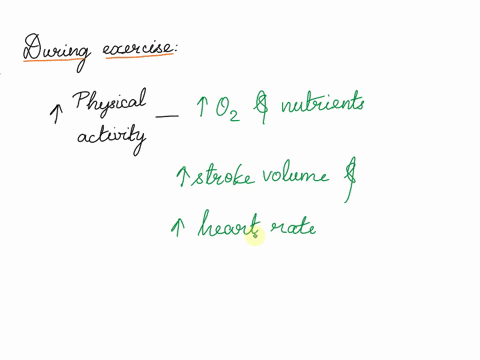 During exercise:
↑ Physical activity — ↑ O₂ & nutrients
↑ stroke volume &
↑ heart rate